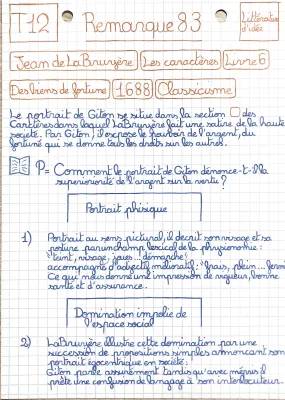 T12
Remarque 83
Littérature
d'idée
Jean de La Bruyère
Les caractères
Livre 6
Des biens de fortune
1688
Classicisme
Le portrait de Giton se situe dans la section 6 des
Caractères dans lequel LaBruyère fait une satire de la haute
société. Par Giton, il expose le pouvoir de l'argent, du
fortuné qui se donne tous les droits sur les autres.
P= Comment le portrait de Giton dénonce-t-il la
superiorité de l'argent sur la vertu ?
Portrait phisique
1) Portrait au sens pictural, il decrit son visage et sa
posture par un champ lexical de la physionomie :
"teint, visage, joues... démarche"
accompagné d'adjectif mélioratif : "frais, plein... ferme"
Ce qui nous donne une impression de vigueur, bonne
santé et d'assurance.
Domination implicite de
l'espace social
2) LaBruyère illustre cette domination par une
succession de propositions simples annoncant son
portrait égocentrique en société :
Giton parle assurément tandis qu'avec mépris il
prête une confusion de langage à son interlocuteur.